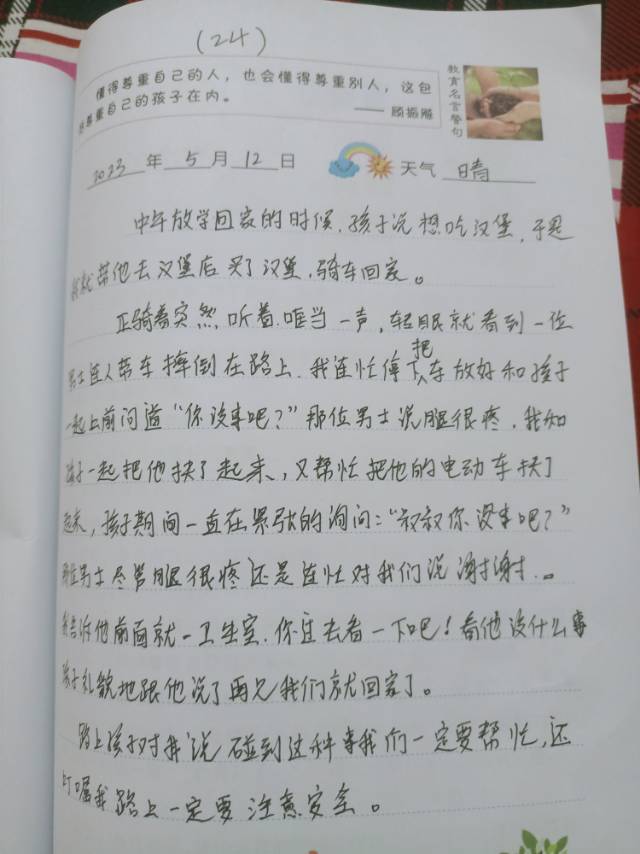 (24)
懂得尊重自己的人，也会懂得尊重别人，这包
括尊重自己的孩子在内。
—— 顾振飚
教育名言警句
2023 年 5 月 12 日 天气 晴
中午放学回家的时候，孩子说想吃汉堡，于是
我就带他去汉堡店买了汉堡，骑车回家。
正骑着突然听着咣当一声，转眼就看到一位
男士连人带车摔倒在路上，我连忙停下把车放好和孩子
一起上前问道“你没事吧？”那位男士说腿很疼，我和
孩子一起把他扶了起来，又帮忙把他的电动车扶了
起来，孩子期间一直在紧张的询问：“叔叔你没事吧？”
那位男士尽管腿很疼还是连忙对我们说谢谢。
我告诉他前面就一卫生室，你过去看一下吧！看他没什么事
孩子礼貌地跟他说了再见我们就回家了。
路上孩子对我说碰到这种事我们一定要帮忙，还
叮嘱我路上一定要注意安全。